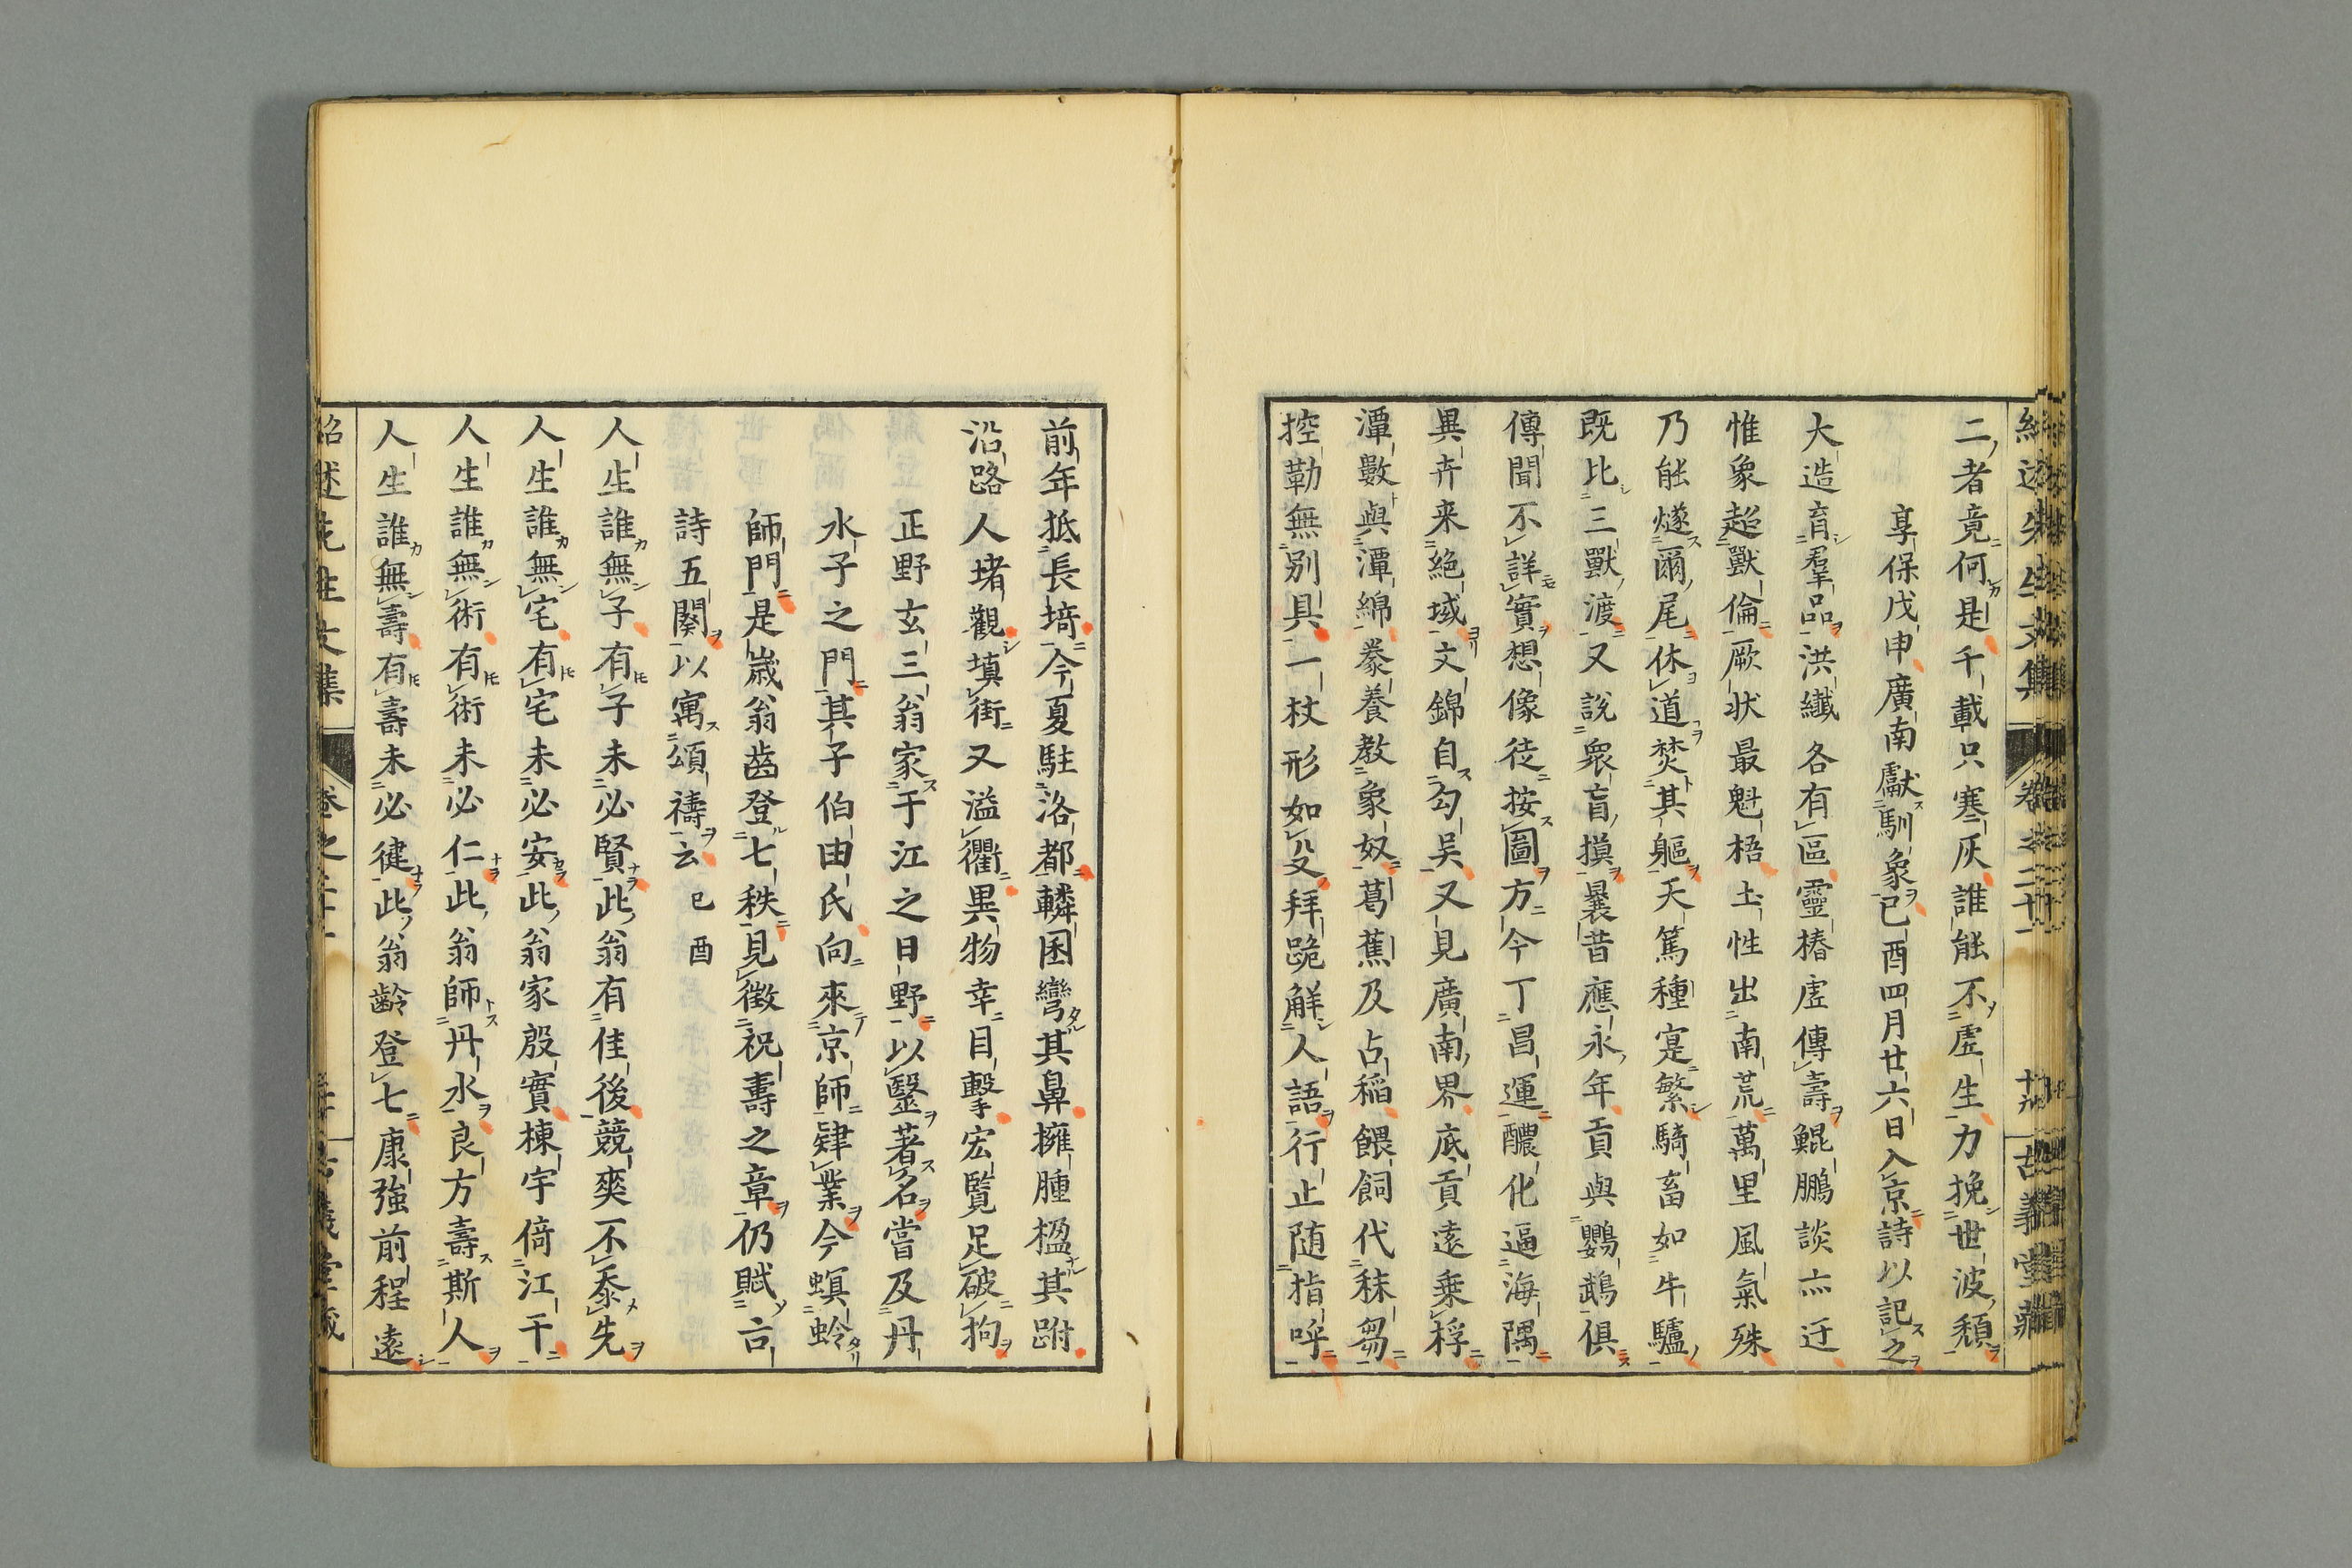 紹述先生文集 卷之二十 古義堂藏
二者竟何是千載只寒灰誰能不虛生力挽世波頹
享保戊申廣南獻馴象己酉四月廿六日入京詩以記之
大造育羣品洪纖各有區靈椿虛傳壽鯤鵬談亦迂
惟象超獸倫厥状最魁梧土性出南荒萬里風氣殊
乃能燧爾尾休道焚其軀天篤種寔繁騎畜如牛驢
既比三獸渡又說衆盲摸曩昔應永年貢與鸚鵡俱
傳聞不詳實想像徒按圖方今丁昌運醲化逼海隅
異卉来絶域文錦自勾吳又見廣南界底貢遠乗桴
潭數與潭綿豢養教象奴葛蕉及占稲餵飼代秣芻
控勒無別具一杖形如殳拜跪解人語行止随指呼
前年抵長埼今夏駐洛都轔囷彎其鼻擁腫楹其跗
沿路人堵觀填街又溢衢異物幸目擊宏覧足破拘
正野玄三翁家于江之日野以醫著名嘗及丹
水子之門其子伯由氏向來京師肄業今螟蛉
師門是歳翁齒登七秩見徴祝壽之章仍賦六言
詩五闋以寓頌禱云 己酉
人生誰無子有子未必賢此翁有佳後競爽不忝先
人生誰無宅有宅未必安此翁家殷實棟宇倚江干
人生誰無術有術未必仁此翁師丹水良方壽斯人
人生誰無壽有壽未必健此翁齢登七康強前程遠
紹述先生文集 卷之二十 古義堂藏